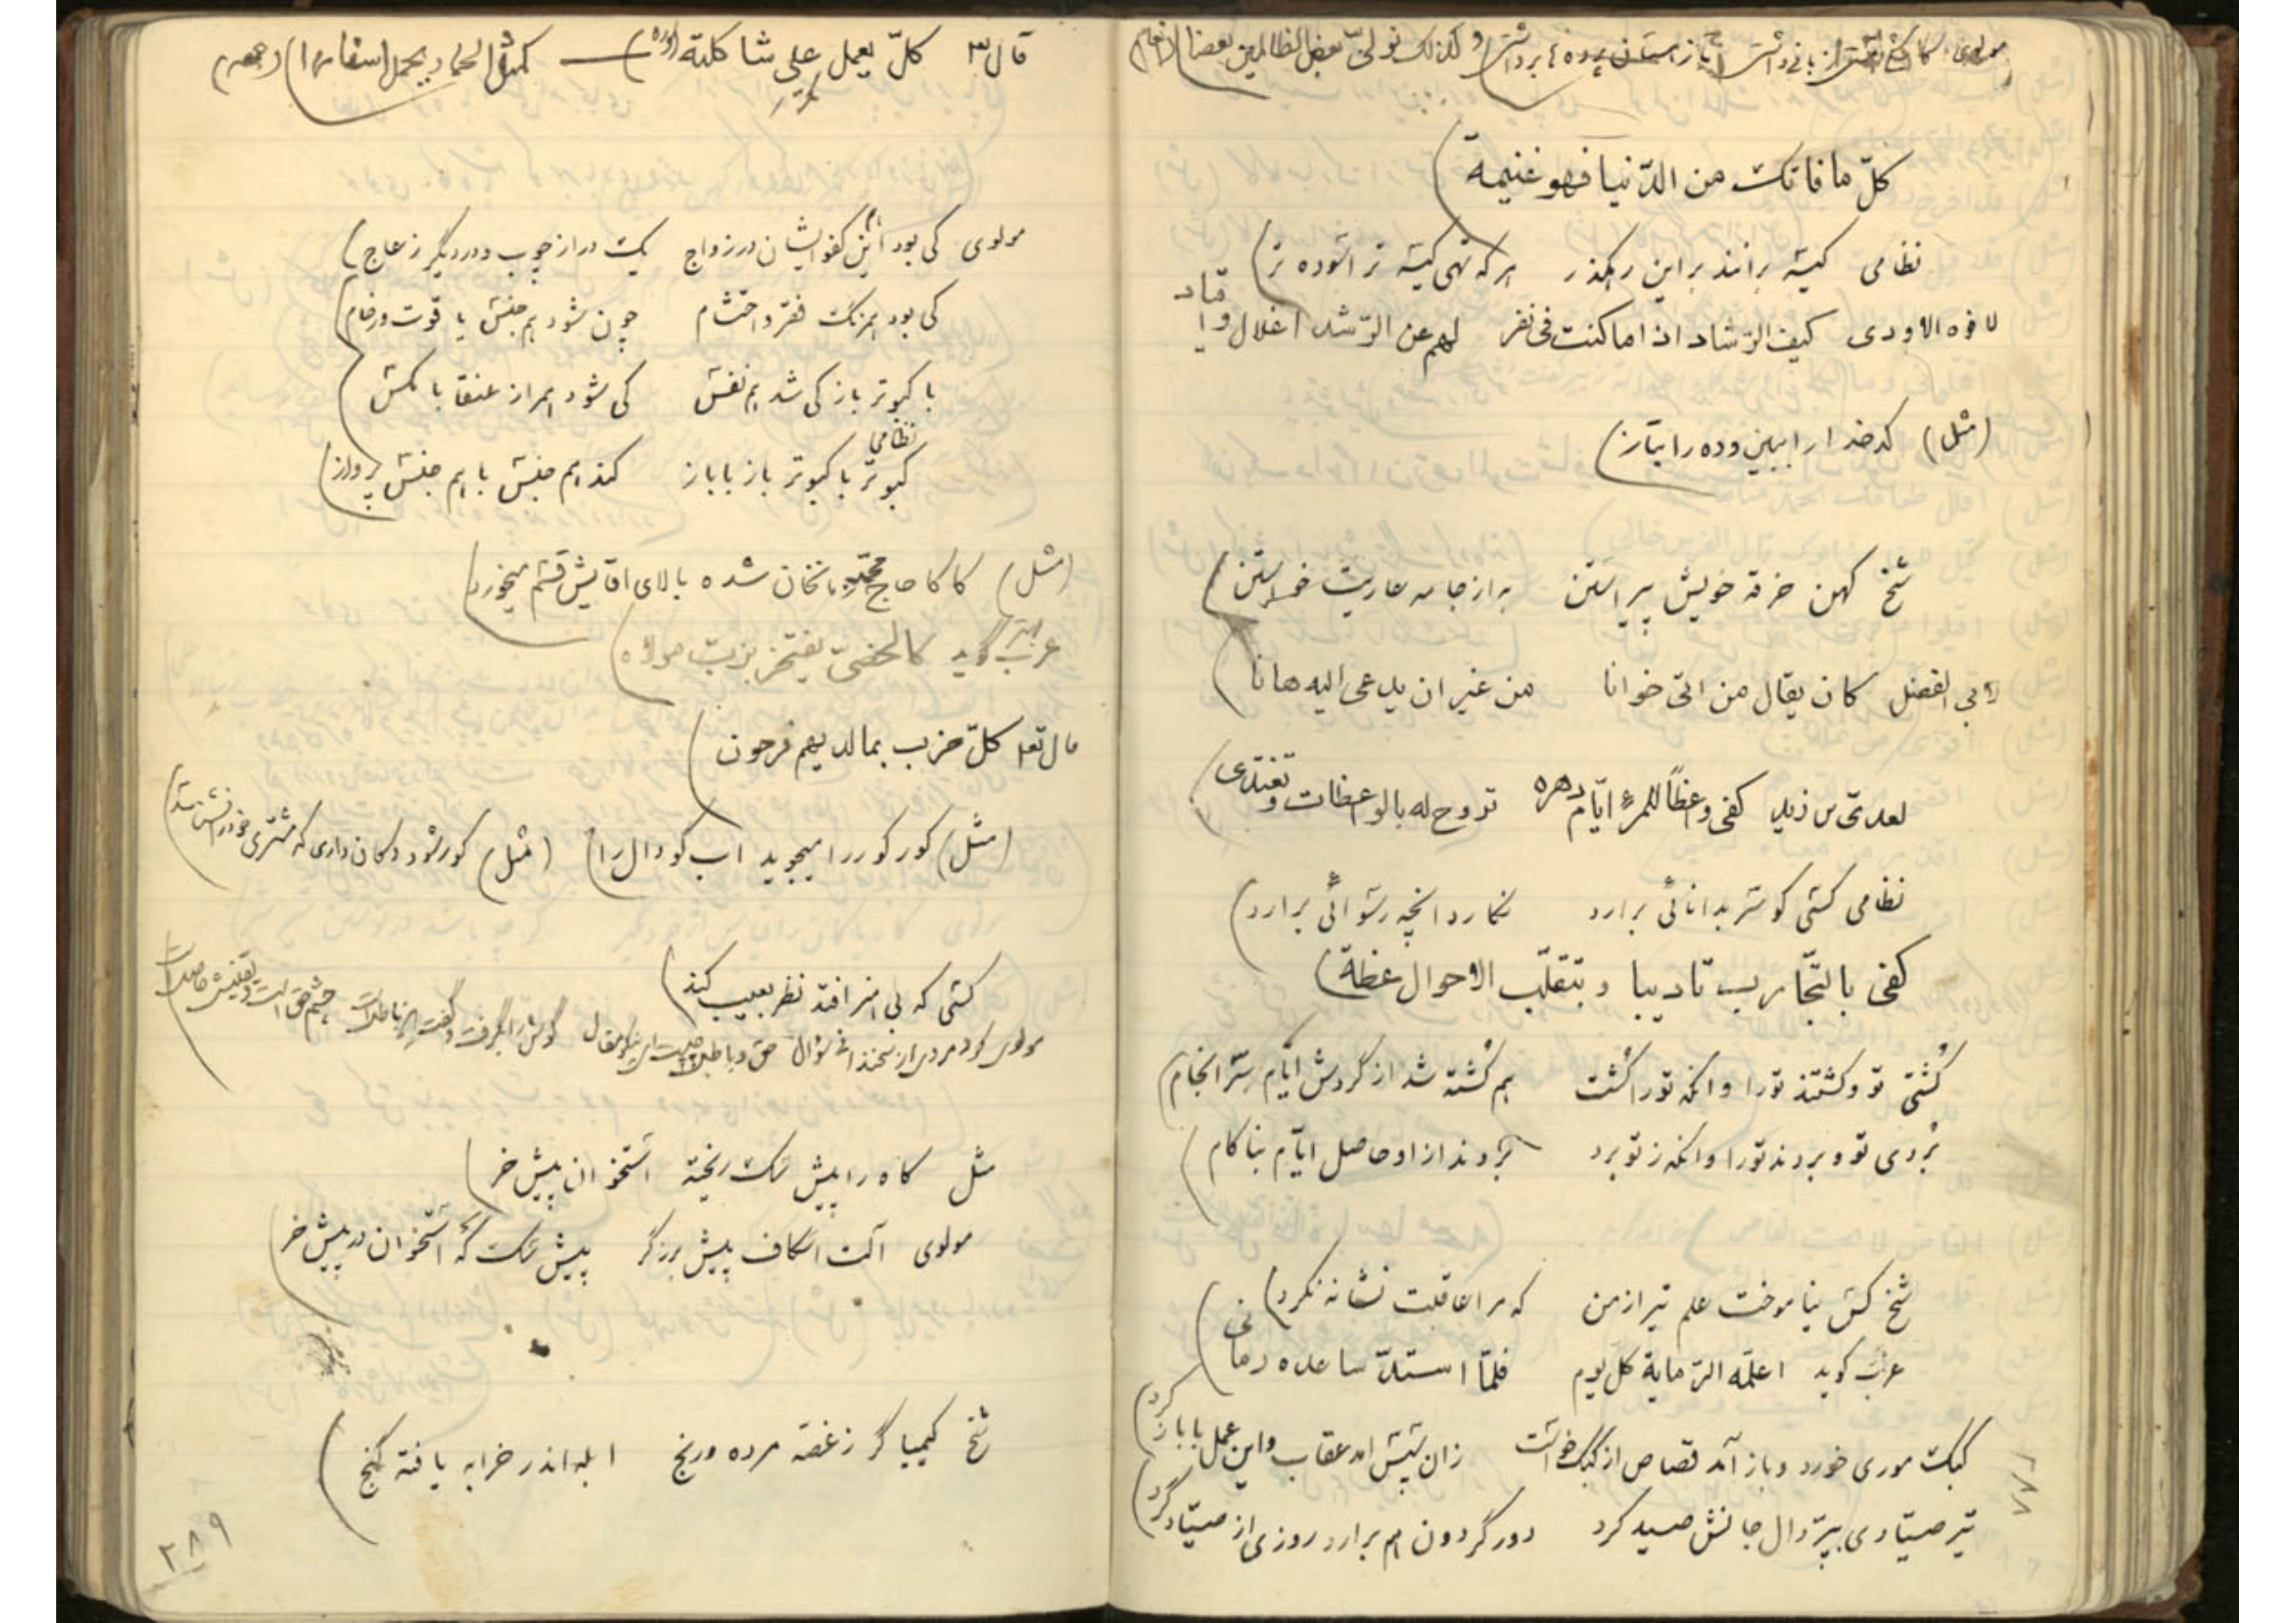 مولوی کاشکی هستی زبانی داشتی تا ز هستان پرده ها برداشتی) و کذلک نولی بعض الظالمین بعضا (انعام)
کلّ ما فاتک من الدّنیا فهو غنیمة)
نظامی کیسه برانند بر این رهکذر هر که تهی کیسه تر آسوده تر)
لافوه الاودی کیف الرّشاد اذا ما کنت فی نفر لهم عن الرّشد اغلال و اقیاد
(مثل) کدخدا را ببین و ده را بتاز)
شخ کهن خرقه خویش پیراستن به از جامه عاریت خواستن)
لابی الفضل کان یقال من اتی خوانا من غیر ان یدعی الیه هانا)
لعدیّ بن زید کفی واعظاً للمرء ایّام دهره تروح له بالواعظات و تغتدی)
نظامی کسی کو سر بدانائی برارد نکارد آنچه رسوائی برارد)
کفی بالتّجارب تادیبا و بتقلّب الاحوال عظة)
کُشتی تو و کشتند تورا و آنکه تورا کُشت هم کُشته شد از گردش ایّام سرانجام)
بُردی تو و بردند تورا و انکه ز تو برد بردند از او حاصل ایّام بناکام)
شخ کس نیاموخت علم تیر از من که مرا عاقبت نشانه نکرد)
عرب گوید اعلّمه الرّمایة کل یوم فلمّا استدّ ساعده رمانی)
کبک موری خورد و باز آمد قصاص از کبک خواست زان سپس امد عقاب و این عمل با باز کرد)
تیر صیّادی بپرّ دال جانش صید کرد دور گردون هم برارد روزی از صیّاد گرد)
۲۸۸
قال تع کلّ یعمل علی شاکلته (اسره) — کمثل الحمار یحمل اسفارا) (جمعه)
مولوی کی بود این کفو ایشان در زواج یک در از چوب و در دیگر ز عاج)
کی بود همرنک فقر و احتشام چون شود هم جنس یاقوت و رخام)
با کبوتر باز کی شد هم نفس کی شود همراز عنقا با مکس
نظامی
کبوتر با کبوتر باز با باز کند هم جنس با هم جنس پرواز)
(مثل) کاکا حاج محمد باخان شده بالای آقایش قسم میخورد)
عرب گوید کالخصیّ یفتخر بزبّ مولاه)
قال تع کلّ حزب بما لدیهم فرحون)
(مثل) کور کور را میجوید اب کودال را) (مثل) کور شود دکان داری که مشتری خود را نشناسد)
کسی که بی هنر افتد نظر بعیب کند)
مولوی کرد مردی از سخندانی سؤال حق و باطل چیست ای نیکو مقال گوش را بگرفت و گفت این باطلست چشم حق است و یقینش حاصلست)
مثل کاه را پیش سک ریخته استخوان پیش خر)
مولوی آلت اسکاف پیش برزگر پیش سک که استخوان در پیش خر)
شخ کیمیاگر ز غصّه مرده و رنج ابله اندر خرابه یافته گنج)
۲۸۹